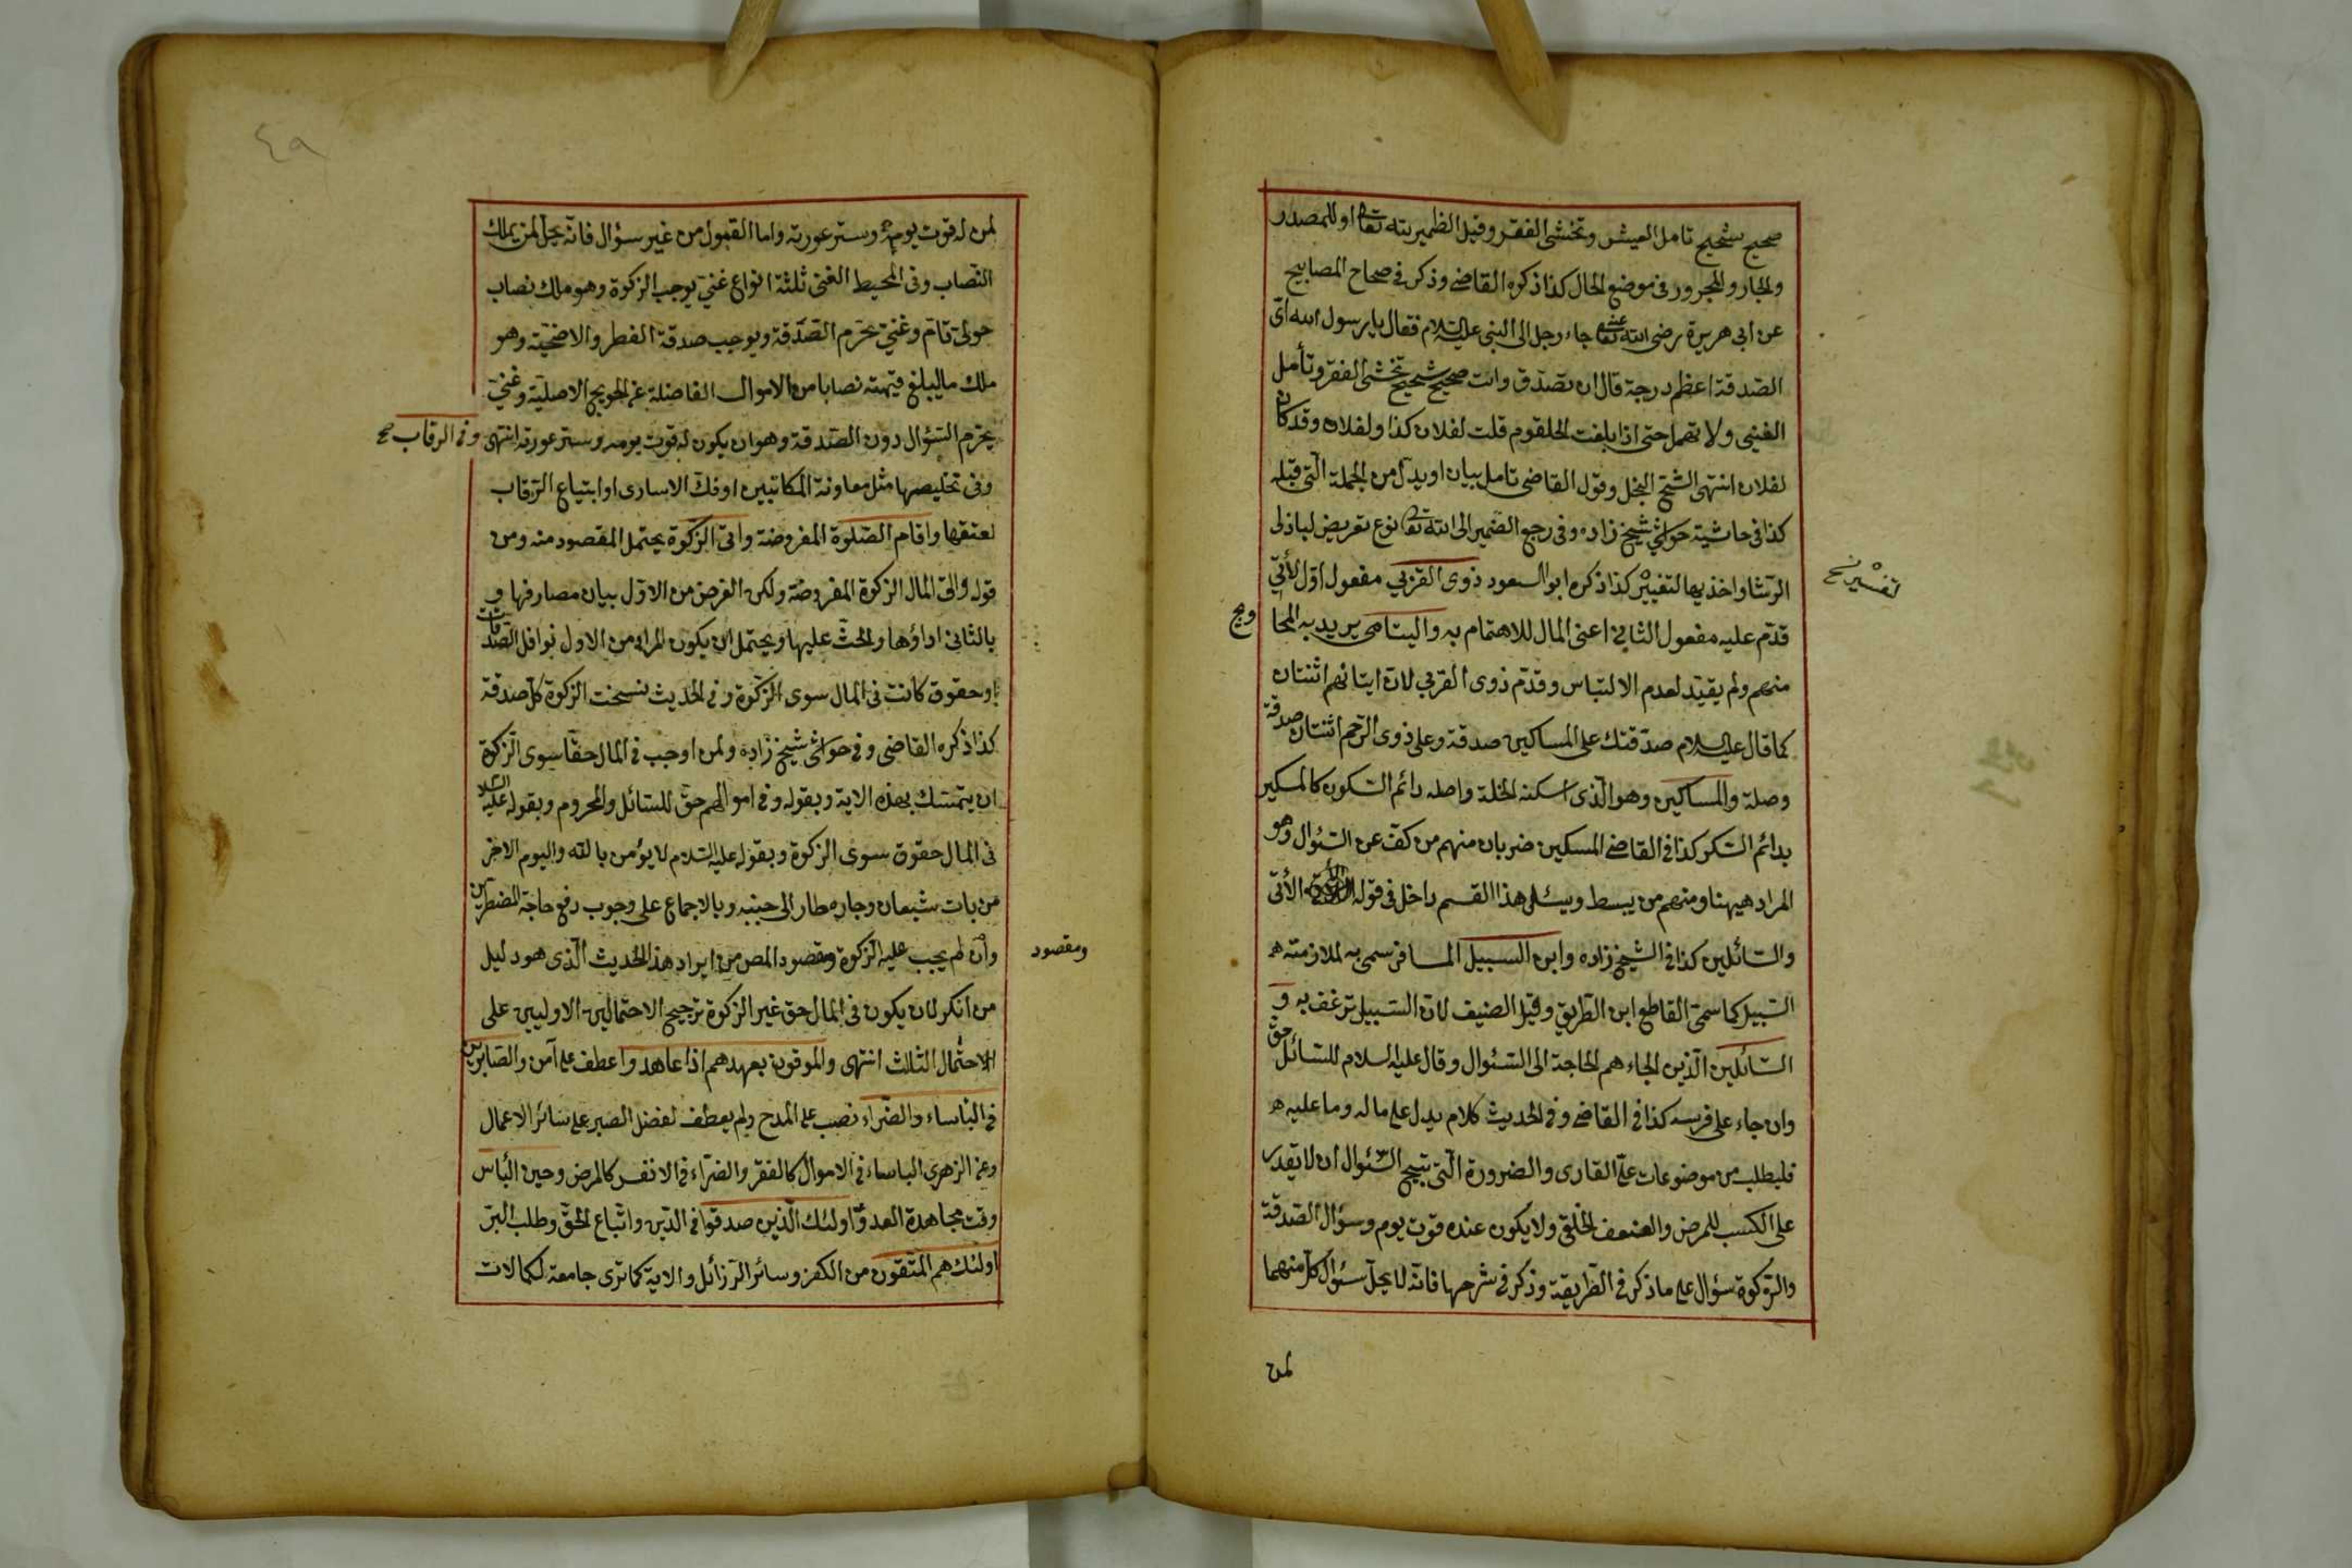 صحيح شحيح تأمل العيش وتخشى الفقر وقيل الضمير لله تعا او للمصدر
والجار والمجرور فى موضع الحال كذا ذكره القاضى وذكر فى صحاح المصابيح
عن ابى هريرة رضى الله تعا عنه جاء رجل الى النبى عليه السلام فقال يا رسول الله اى
الصدقة اعظم درجة قال ان تصدق وانت صحيح شحيح تخشى الفقر وتأمل
الغنى ولا تمهل حتى اذا بلغت الحلقوم قلت لفلان كذا ولفلان وقد كان
لفلان انتهى الشح البخل وقول القاضى تامل بيان او بدل من الجملة التى قبله
كذا فى حاشية حواشى شيخ زاده وفى رجع الضمير الى الله تعا نوع تعريض لباذلى
الرشا واخذيها لتغيير كذا ذكره ابو السعود ذوى القربى مفعول اول لأتى
تفسير نسخ
قدم عليه مفعول الثانى اعنى المال للاهتمام به واليتامى يريد به المحا
ويج
منهم ولم يقيد لعدم الالتباس وقدم ذوى القربى لان ايتائهم اثنتان
كما قال عليه السلام صدقتك على المساكين صدقة وعلى ذوى الرحم اثنتان صدقة
وصلة والمساكين وهو الذى اسكنه الخلة واصله دائم السكون كالمسكير
بدائم السكر كذا فى القاضى المسكين ضربان منهم من كف عن السؤال وهو
المراد هيهنا ومنهم من يبسط ويسئل هذا القسم داخل فى قوله الأتى
والسائلين كذا فى الشيخ زاده وابن السبيل المسافر سمى به لملازمته
السبيل كما سمى القاطع ابن الطريق وقيل الضيف لان السبيل ترعف به و
السائلين الذين الجاء هم الحاجة الى السئوال وقال عليه السلام للسائل حق
وان جاء على فرسه كذا فى القاضى وفى الحديث كلام يدل على ما له وما عليه
فليطلب من موضوعات على القارى والضرورة التى تبيح السئوال ان لا يقدر
على الكسب للمرض والضعف الخلقى ولا يكون عنده قوت يوم وسؤال الصدقة
والزكوة سؤال على ما ذكر فى الطريقة وذكر فى شرحها فانه لا يحل سئوال كل منهما
لمن
٤٩
لمن له قوت يومه وستر عورته واما القبول من غير سؤال فانه يحل لمن يملك
النصاب وفى المحيط الغنى ثلثة انواع غنى يوجب الزكوة وهو ملك نصاب
حولى تام وغنى يحرم الصدقة ويوجب صدقة الفطر والاضحية وهو
ملك ما يبلغ قيمته نصابا من الاموال الفاضلة عن الحويج الاصلية وغنى
يحرم السئوال دون الصدقة وهو ان يكون له قوت يومه وستر عورته انتهى وفى الرقاب صح
وفى تخليصها مثل معاونة المكاتبين او فك الاسارى او ابتياع الرقاب
لعتقها واقام الصلوة المفروضة واتى الزكوة يحتمل المقصود منه ومن
قوله واتى المال الزكوة المفروضة ولكن الغرض من الاول بيان مصارفها و
بالثانى اداؤها والحث عليها ويحتمل ان يكون المراد من الاول نوافل الصدقات
او حقوق كانت فى المال سوى الزكوة وفى الحديث نسخت الزكوة كل صدقة
كذا ذكره القاضى وفى حواشى شيخ زاده ولمن اوجب فى المال حقا سوى الزكوة
ان يتمسك بهذه الاية وبقوله وفى اموالهم حق للسائل والمحروم وبقوله عليه السلا
فى المال حقوق سوى الزكوة وبقوله عليه السلام لا يؤمن بالله واليوم الاخر
من بات شبعان وجاره طار الى جنبه وبالاجماع على وجوب دفع حاجة المضطرين
وان لم يجب عليه الزكوة ومقصود المص من ايراد هذا الحديث الذى هو دليل
ومقصود
من انكر لان يكون فى المال حق غير الزكوة ترجيح الاحتمالين الاوليين على
الاحتمال الثالث انتهى والموفون بعهدهم اذا عاهدوا عطف على آمن والصابرين
فى البأساء والضراء نصب على المدح ولم يعطف لفضل الصبر على سائر الاعمال
وعن الزهرى الباساء فى الاموال كالفقر والضراء فى الانفس كالمرض وحين البأس
وقت مجاهدة العدو اولئك الذين صدقوا فى الدين واتباع الحق وطلب البر
اولئك هم المتقون من الكفر وسائر الرزائل والاية كما ترى جامعة لكمالات